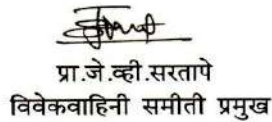 प्रा.जे.व्ही.सरतापे
विवेकवाहिनी समीती प्रमुख